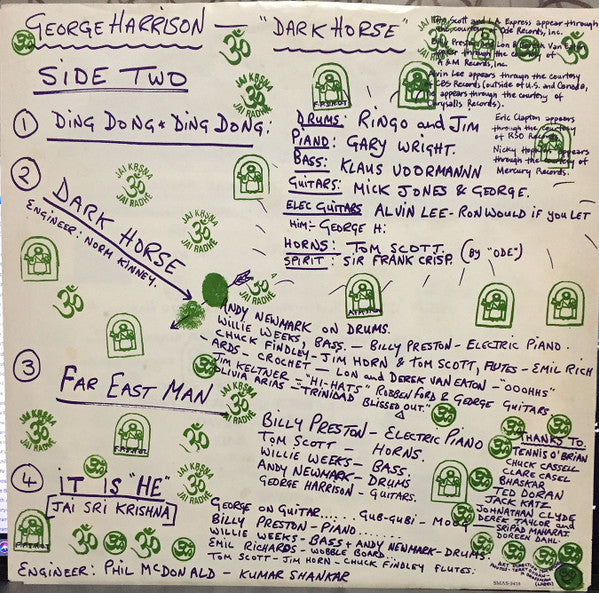 GEORGE HARRISON — "DARK HORSE"
SIDE TWO
Tom Scott and L.A. Express appear through
the courtesy of Ode Records, Inc.
Billy Preston and Lon & Derrek Van Eaton
appear through the courtesy of
A & M Records, Inc.
Alvin Lee appears through the courtesy
of CBS Records (outside of U.S. and Canada,
appears through the courtesy of
Chrysalis Records).
Eric Clapton appears
through the courtesy
of RSO Records.
Nicky Hopkins appears
through the courtesy of
Mercury Records.
① DING DONG * DING DONG:
DRUMS: RINGO and JIM
PIANO: GARY WRIGHT.
BASS: KLAUS VOORMANNN
GUITARS: MICK JONES & GEORGE.
ELEC GUITARS ALVIN LEE - RON WOULD IF YOU LET
HIM:- GEORGE H:
HORNS: TOM SCOTT. (BY "ODE")
SPIRIT: SIR FRANK CRISP.
② DARK HORSE
ENGINEER: NORM KINNEY.
ANDY NEWMARK ON DRUMS.
WILLIE WEEKS, BASS. — BILLY PRESTON - ELECTRIC PIANO.
CHUCK FINDLEY - JIM HORN & TOM SCOTT, FLUTES - EMIL RICH
- ARDS - CROCHET - LON and DEREK VAN EATON - "OOOHHS"
JIM KELTNER - "HI-HATS" ROBBEN FORD & GEORGE GUITARS
OLIVIA ARIAS - "TRINIDAD BLISSED OUT."
③ FAR EAST MAN
BILLY PRESTON - ELECTRIC PIANO
TOM SCOTT - HORNS.
WILLIE WEEKS - BASS.
ANDY NEWMARK - DRUMS
GEORGE HARRISON - GUITARS.
④ IT IS "HE"
JAI SRI KRISHNA
GEORGE ON GUITAR...... GUB-GUBI - MOOG
BILLY PRESTON - PIANO.......
WILLIE WEEKS - BASS + ANDY NEWMARK - DRUMS.
EMIL RICHARDS - WOBBLE BOARD..
TOM SCOTT - JIM HORN - CHUCK FINDLEY FLUTES:
ENGINEER: PHIL MCDONALD - KUMAR SHANKAR
THANKS TO.
TENNIS O'BRIAN
CHUCK CASSELL
CLARE CASEL
BHASKAR
TED DORAN
JACK KATZ
JOHNATHAN CLYDE
DEREK TAYLOR and
SRIPAD MAHARAJ
DOREEN DAHL
SMAS-3418
JAI KRSNA
ॐ
JAI RADHE
JAI KRSNA
ॐ
JAI RADHE
JAI KRSNA
ॐ
JAI RADHE
JAI KRSNA
ॐ
JAI RADHE
JAI KRSNA
ॐ
JAI RADHE
JAI KRSNA
ॐ
JAI RADHE
F.P.S.H.O.T